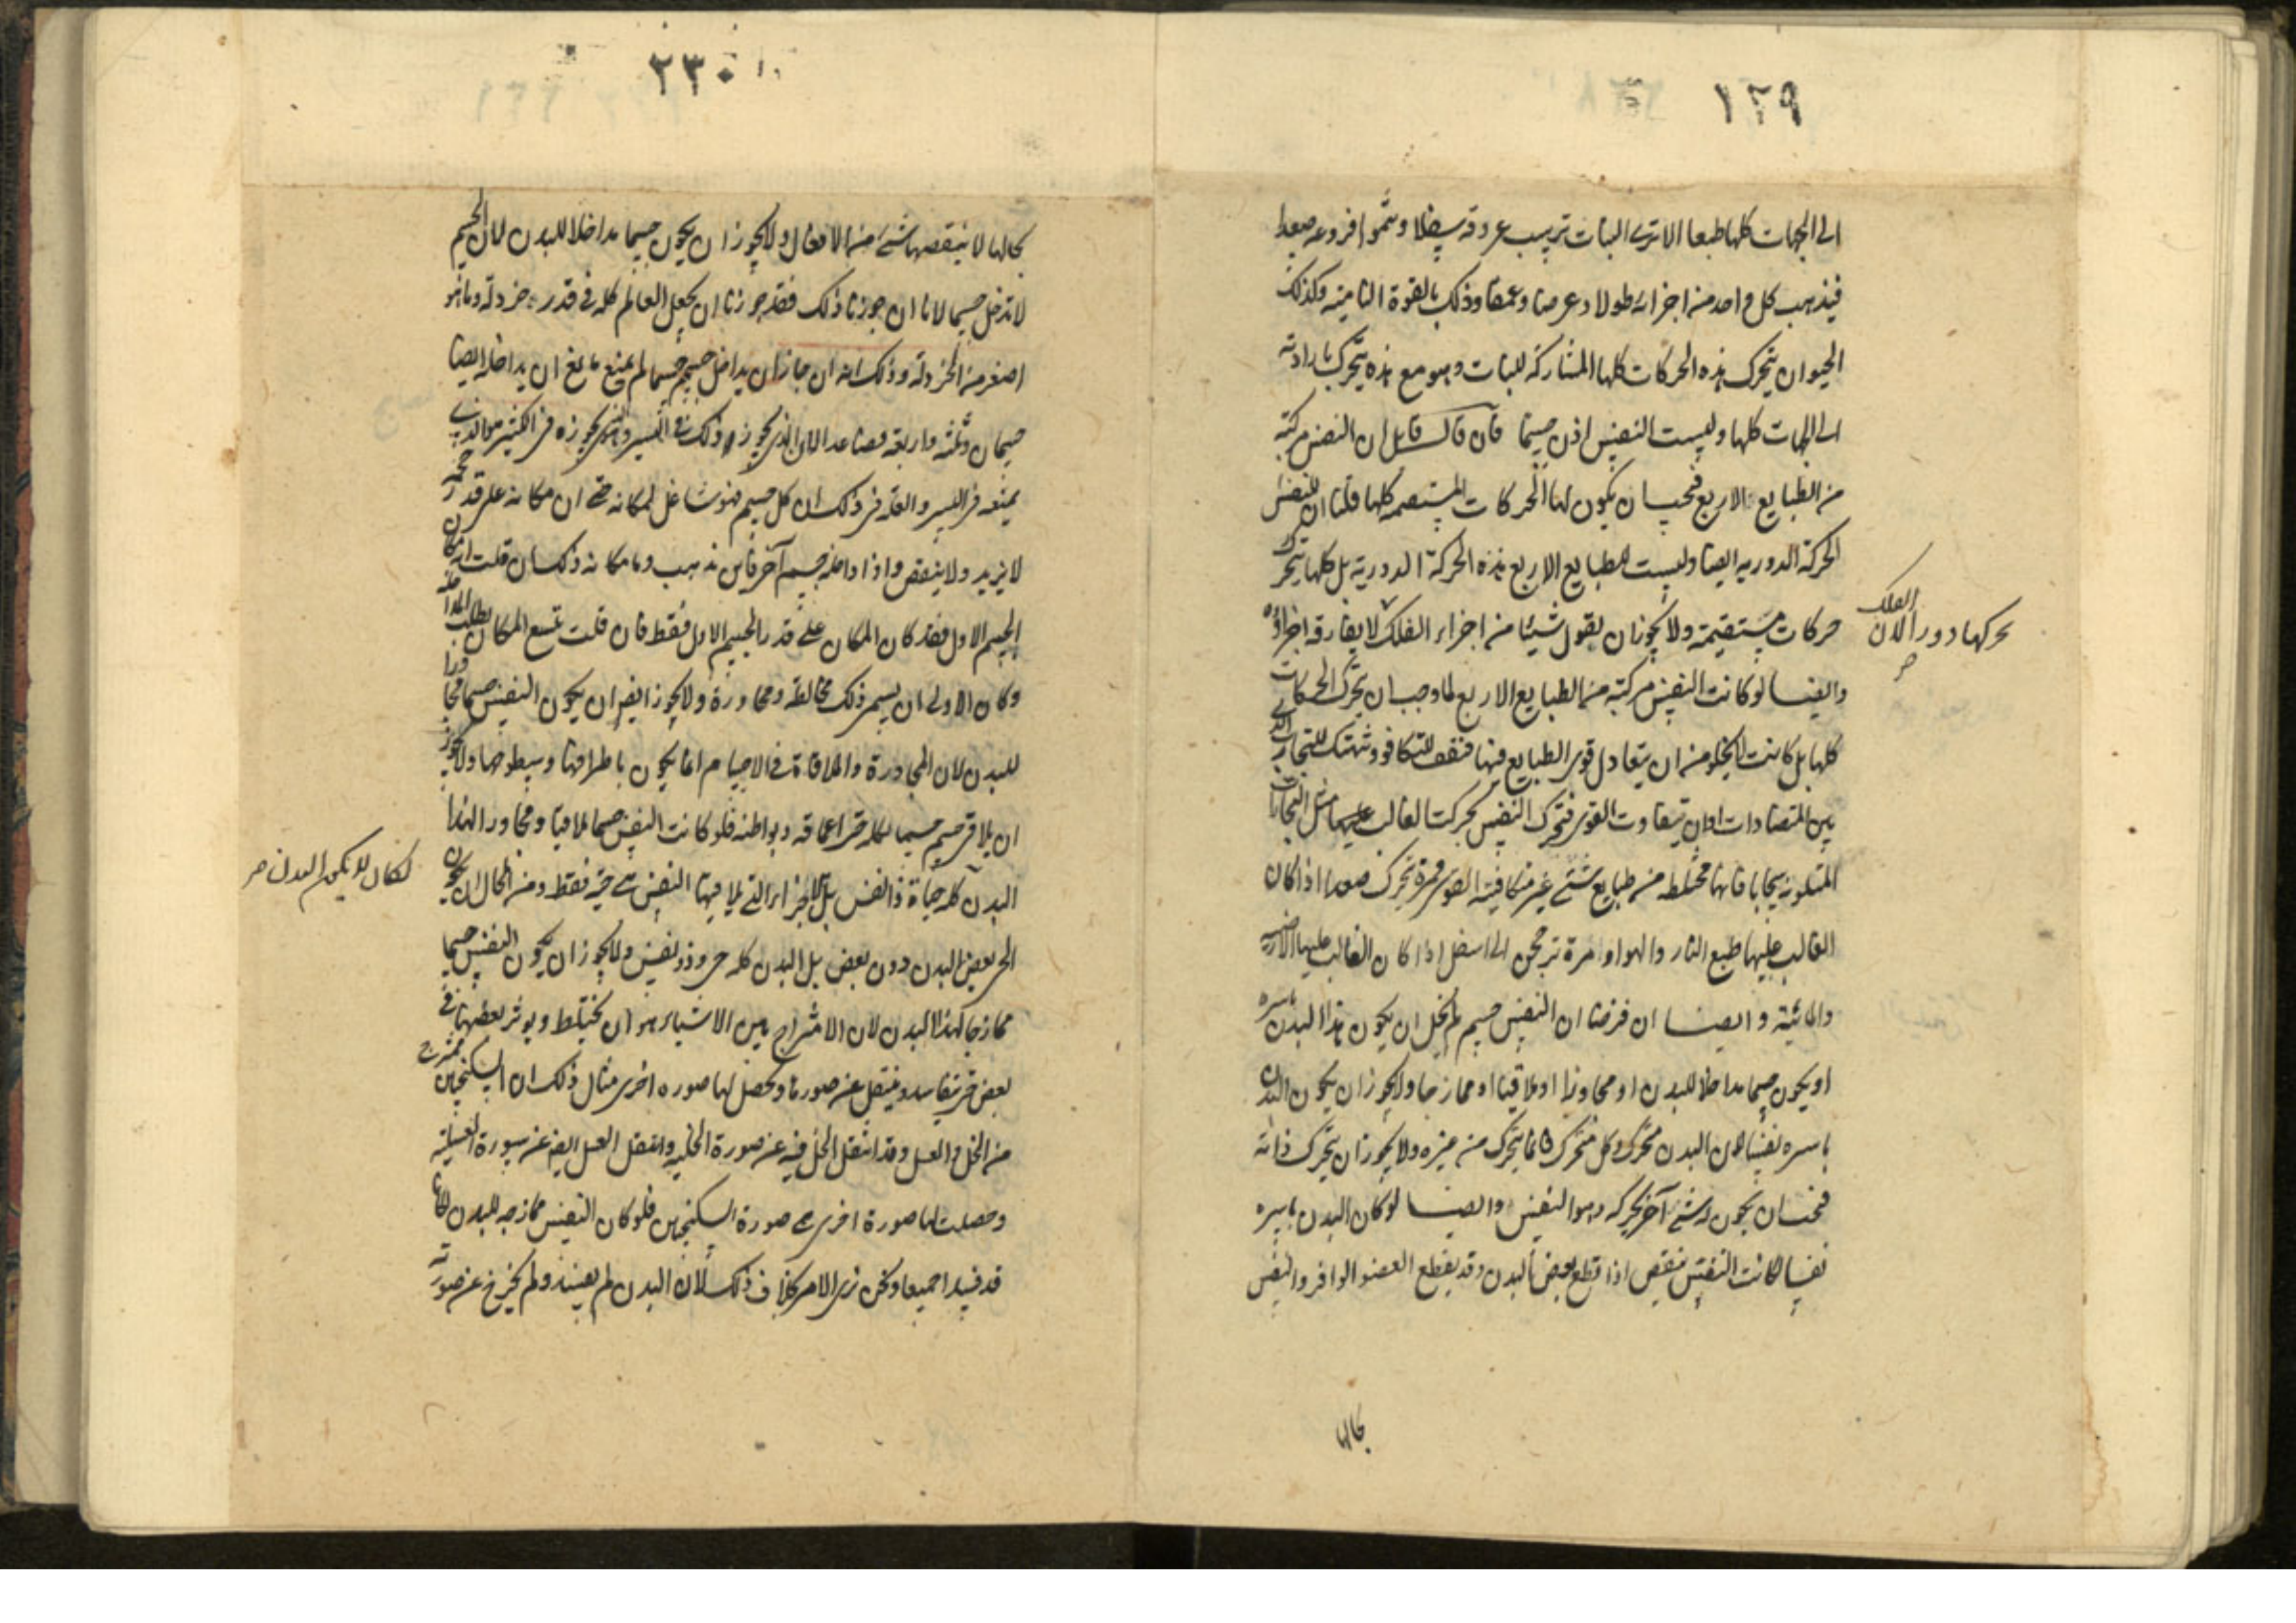 ١٢٩
الى الجهات كلها طبعا الا ترى النبات ترسب عروقه سفلا وتنموا فروعه صعدا
فيذهب كل واحد من اجزائه طولا وعرضا وعمقا وذلك بالقوة النامية وكذلك
الحيوان يتحرك هذه الحركات كلها المشاركة للنبات وهو مع هذه يتحرك بارادته
الى الجهات كلها وليست النفس اذن جسما فان قال قايل ان النفس مركبة
من الطبايع الاربع فيجب ان يكون لها الحركات المستقيمة كلها قلنا ان للنفس
الحركة الدورية ايضا وليست للطبايع الاربع هذه الحركة الدورية بل كلها يتحرك
حركات مستقيمة ولا يجوز ان يقول شيئا من اجزاء الفلك لا يفارقه اجزاؤه
تحركها دورا لان الفلك
وايضا لو كانت النفس مركبة من الطبايع الاربع لما وجب ان يتحرك الحركات
كلها بل كانت لا يخلو من ان يتعادل قوى الطبايع فيها فتقف للتكافو
بين المتضادات او ان يتفاوت القوى فتحرك النفس بحركت الغالب عليها مثل
المتلونة فانها مختلطه من طبايع شتى غير متكافية القوى فمرة تتحرك صعدا اذا كان
الغالب عليها طبع النار والهوا ومرة ترجحن الى اسفل اذا كان الغالب عليها الارضية
والمائية وايضا ان فرضنا ان النفس جسم لم يخل ان يكون هذا البدن باسره
او يكون جسما مداخلا للبدن او مجاورا او ملاقيا او ممازجا ولا يجوز ان يكون البدن
باسره نفسا لان البدن متحرك وكل متحرك فانما يتحرك من غيره ولا يجوز ان يتحرك ذاته
فيجب ان يكون له شئ آخر يحركه وهو النفس وايضا لو كان البدن باسره
نفسا لكانت النفس ينقص اذا قطع بعض البدن وقد يقطع العضو الوافر والنفس
بحالها
٢٣٠
بحالها لا ينقصها شئ من الافعال ولا يجوز ان يكون جسما مداخلا للبدن لان الجسم
لا تدخل جسما لانا ان جوزنا ذلك فقد جوزنا ان يجعل العالم كله في قدر خردلة وما هو
اصغر من الخردلة وذلك انه ان جاز ان يداخل جسم جسما لم يمنع مانع ان يداخله ايضا
جسمان وثلثة واربعة فصاعدا لان الذى يجوز ذلك في اليسير يجوزه في الكثير والذى
يمنعه في اليسير والعلة في ذلك ان كل جسم فهو شاغل لمكانه حتى ان مكانه على قدر حجمه
لا يزيد ولا ينقص واذا داخله جسم آخر فاين يذهب وما مكانه ذلك ان قلت ان مكان
الجسم الاول فقد كان المكان على قدر الجسم الاول فقط فان قلت تسع المكان بطلت المداخلة
وكان الاولى ان يسمى ذلك مخالطة ومجاورة ولا يجوز ايضا ان يكون النفس جسما مجاورا
للبدن لان المجاورة والملاقاة في الاجسام انما يكون باطرافها وسطوحها ولا يجوز
ان يلاقى جسم جسما بكله حتى اعماقه وبواطنه فلو كانت النفس جسما ملاقيا ومجاورا لهذا
البدن لكان لا يكون البدن
كله حياة ذا نفس بل الاجزاء التي يلاقيها النفس هي حية فقط ومن المحال ان يكون
الحى بعض البدن دون بعض بل البدن كله حى وذو نفس ولا يجوز ان يكون النفس جسما
ممازجا لهذا البدن لان الامتزاج بين الاشياء هو ان يختلط ويوثر بعضها في
بعض حتى يتفاسد وينتقل عن صورها وتحصل لها صوره اخرى مثال ذلك ان السكنجبين ممتزج
من الخل والعسل وقد انتقل الخل فيه عن صورة الخلية وانتقل العسل ايضا عن صورة العسلية
وحصلت لها صورة اخرى هي صورة السكنجبين فلو كان النفس ممازجه للبدن لكانا
قد فسدا جميعا ونحن نرى الامر بخلاف ذلك لان البدن لم يفسد ولم يخرج عن صورته